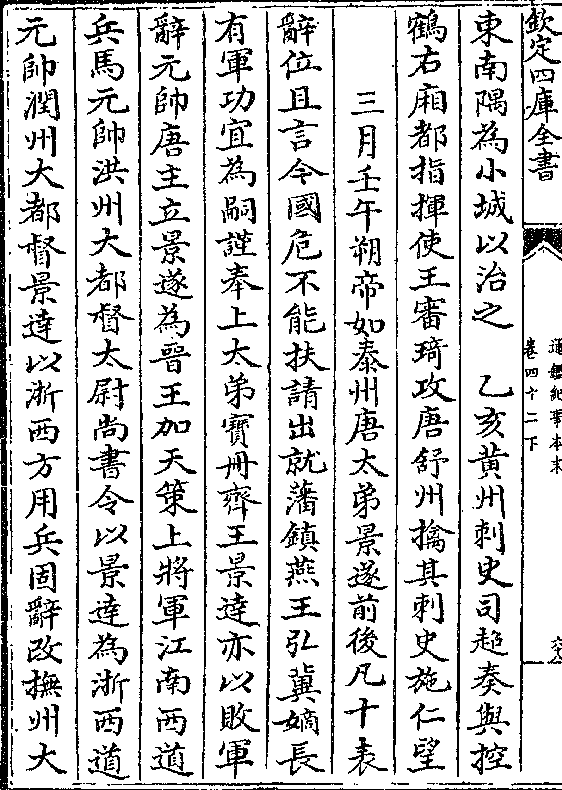 欽定四庫全書
通鑑紀事本末
卷四十二下
東南隅為小城以治之　乙亥黃州刺史司超奏與控
鶴右廂都指揮使王審琦攻唐舒州擒其刺史施仁望
三月壬午朔帝如泰州唐太弟景遂前後凡十表
辭位且言今國危不能扶請出就藩鎮燕王弘冀嫡長
有軍功宜為嗣謹奉上太弟寶冊齊王景達亦以敗軍
辭元帥唐主立景遂為晉王加天策上將軍江南西道
兵馬元帥洪州大都督太尉尚書令以景達為浙西道
元帥潤州大都督景達以浙西方用兵固辭改撫州大